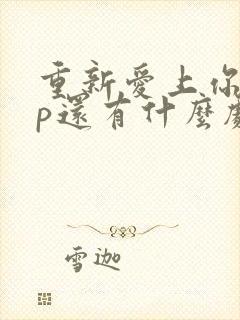 重新愛上你
p還有什麼
雪迦